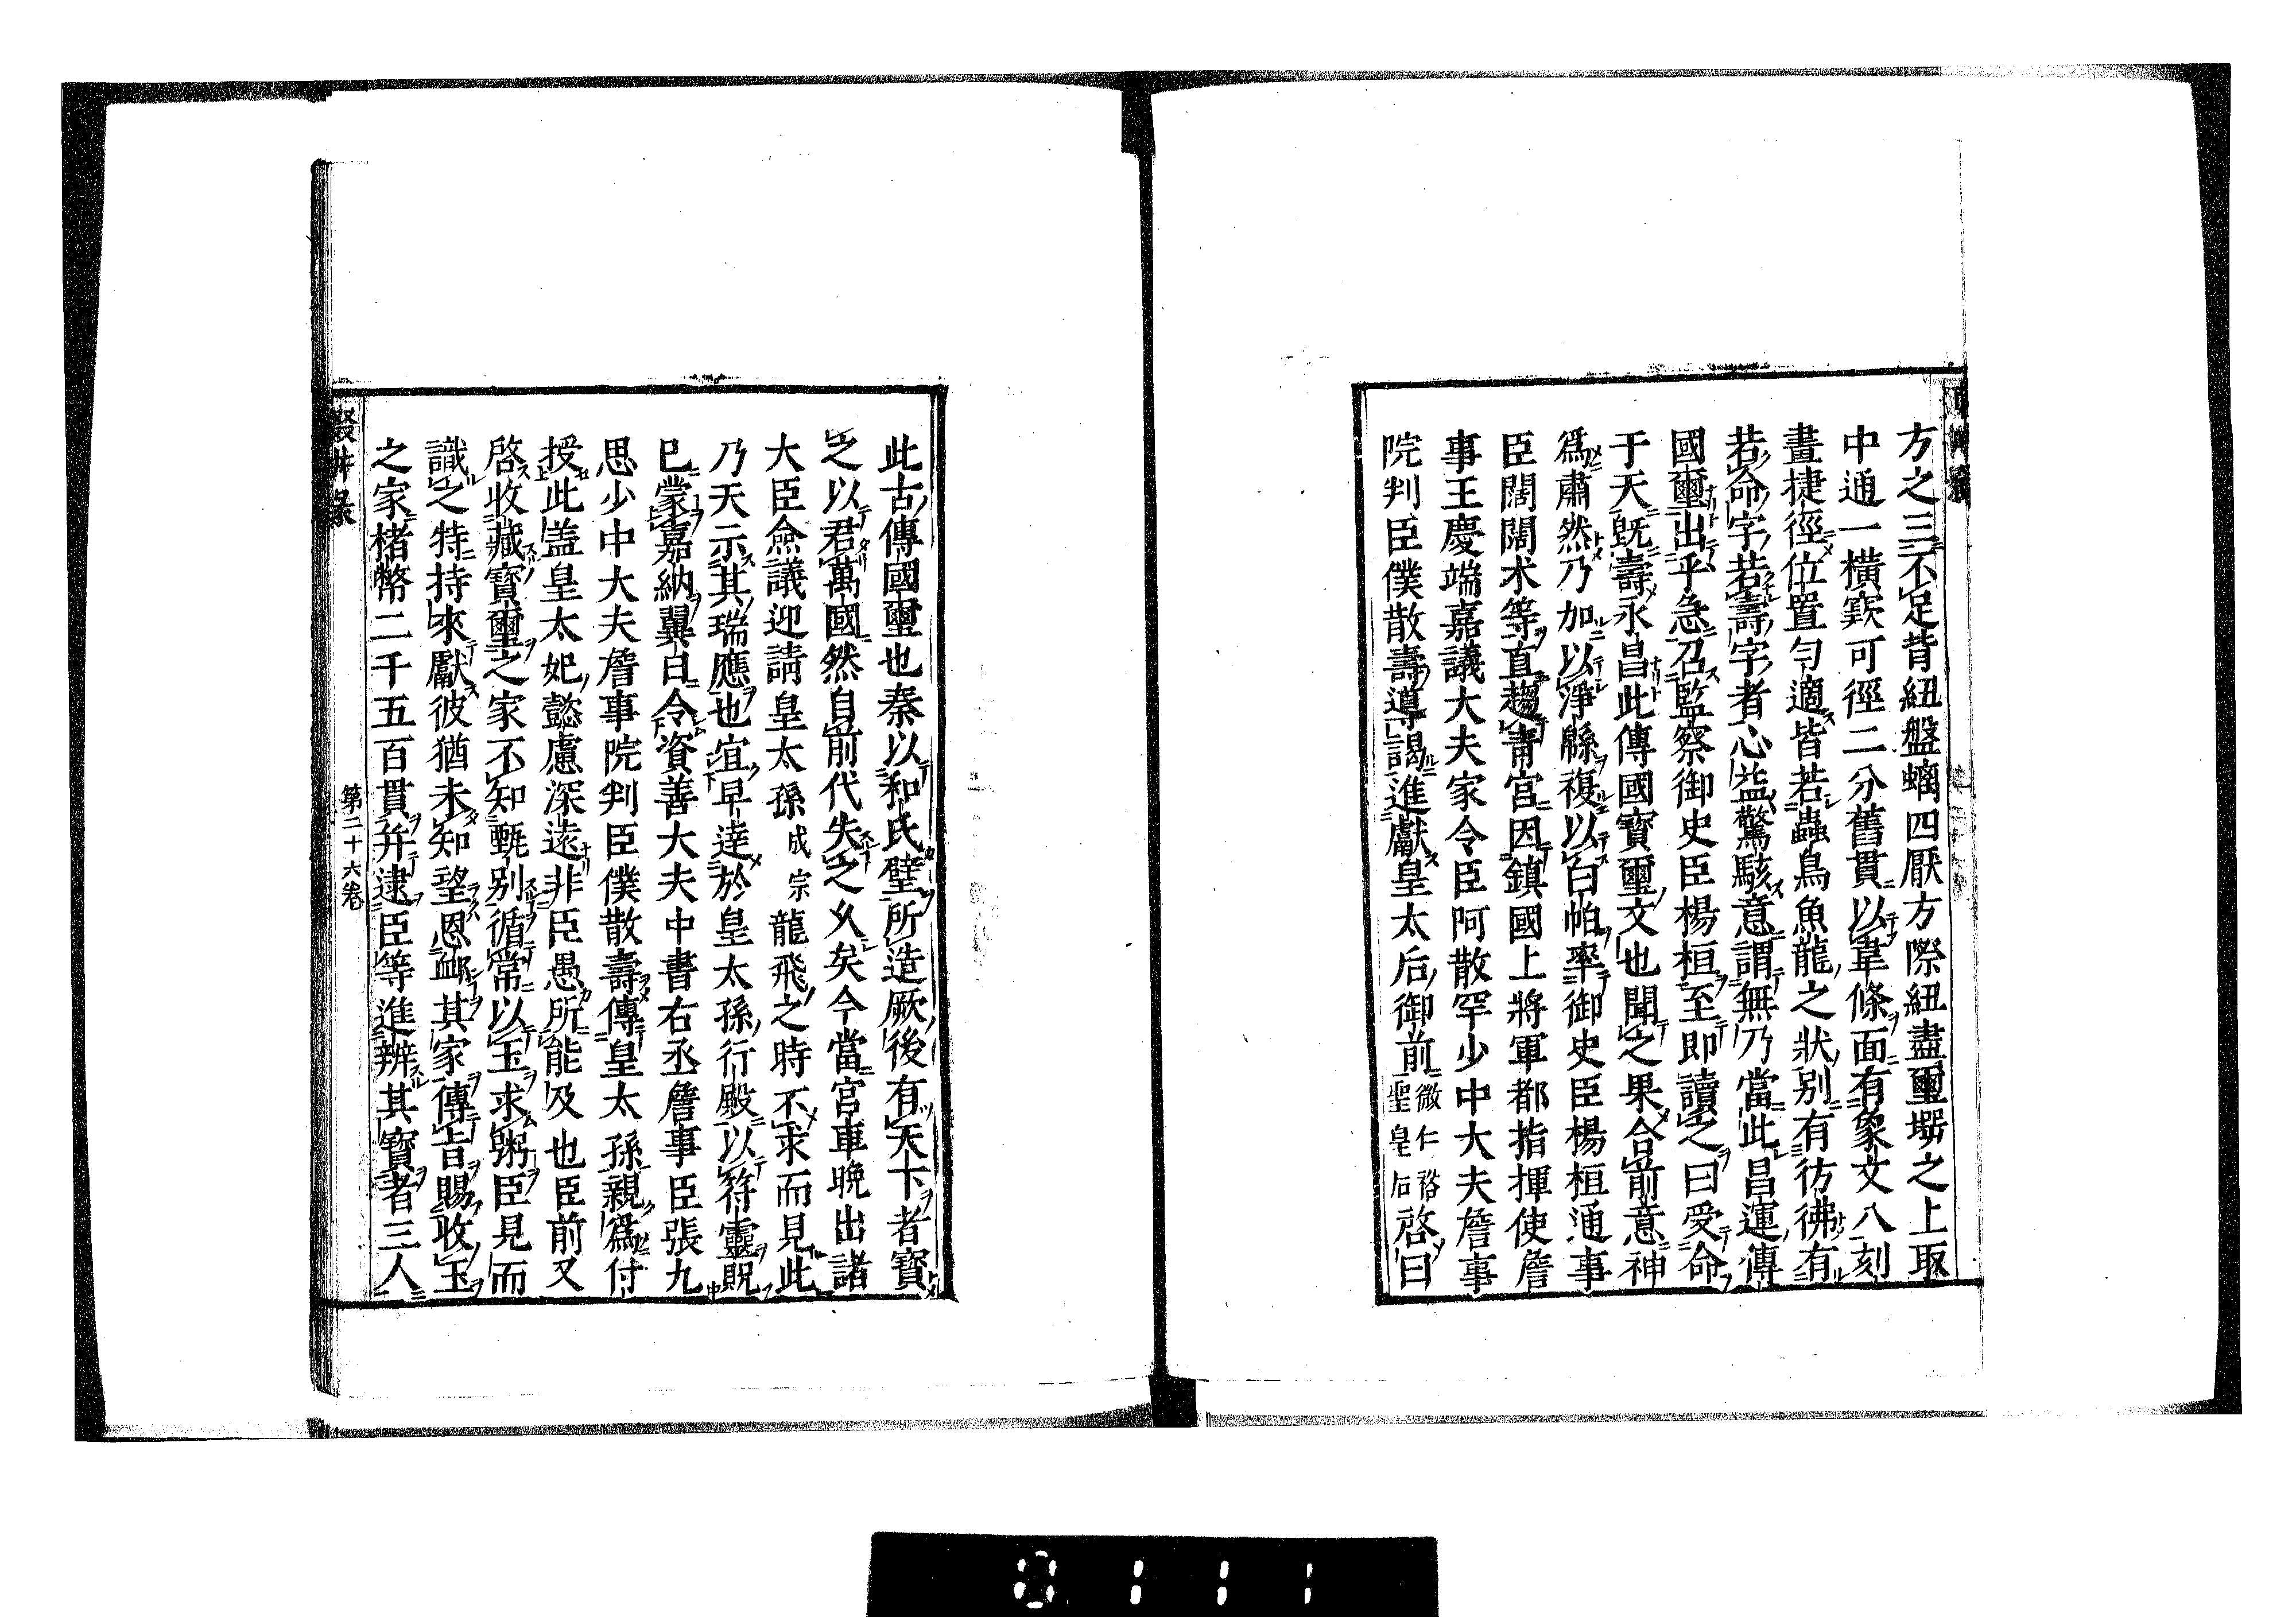 方之三不足背紐盤螭四厭方際紐盡璽堮之上取
中通一橫竅可徑二分舊貫以韋條面有象文八刻
畫捷徑位置勻適皆若蟲鳥魚龍之狀別有彷彿有
若命字若壽字者心益驚駭意謂無乃當此昌運傳
國璽出乎急召監察御史臣楊桓至即讀之曰受命
于天既壽永昌此傳國寶璽文也聞之果合前意神
爲肅然乃加以淨緜複以白帕率御史臣楊桓通事
臣闊闊朮等直趨青宮因鎮國上將軍都指揮使詹
事王慶端嘉議大夫家令臣阿散罕少中大夫詹事
院判臣僕散壽導謁進獻皇太后御前微仁裕聖皇后啓曰
此古傳國璽也秦以和氏璧所造厥後有天下者寶
之以君萬國然自前代失之久矣今當宮車晚出諸
大臣僉議迎請皇太孫成宗龍飛之時不求而見此
乃天示其瑞應也宜早達於皇太孫行殿以符靈貺
已蒙嘉納翼日令資善大夫中書右丞詹事臣張九
思少中大夫詹事院判臣僕散壽傳皇太孫親爲付
授此盖皇太妃懿慮深遠非臣愚所能及也臣前又
啓收藏寶璽之家不知甄別循常以玉求粥臣見而
識之特持來獻彼猶未知望恩䘏其家傳旨賜收玉
之家楮幣二千五百貫并逮臣等進辨其寶者三人
輟耕錄
第二十六卷
0111